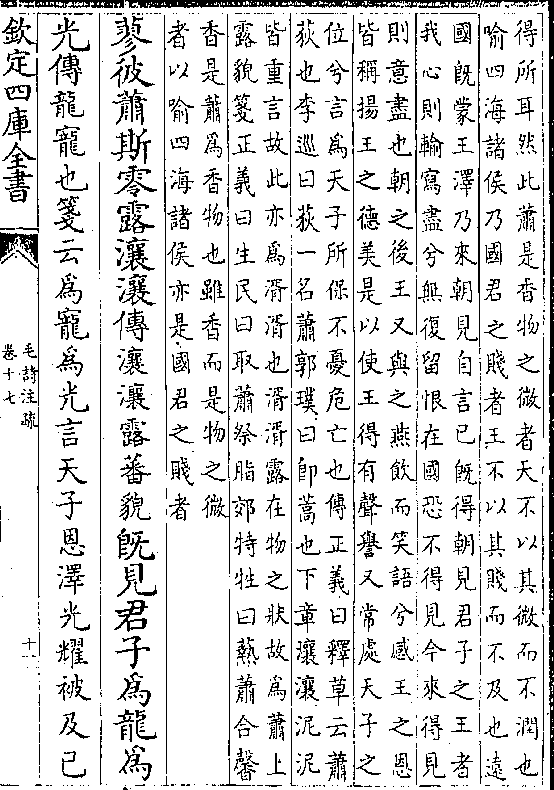 得所耳然此蕭是香物之微者天不以其微而不潤也
喻四海諸侯乃國君之賤者王不以其賤而不及也遠
國既蒙王澤乃來朝見自言已既得朝見君子之王者
我心則輸寫盡兮無復留恨在國恐不得見今來得見
則意盡也朝之後王又與之燕飲而笑語兮感王之恩
皆稱揚王之德美是以使王得有聲譽又常處天子之
位兮言為天子所保不憂危亡也傳正義曰釋草云蕭
荻也李巡曰荻一名蕭郭璞曰卽蒿也下章瀼瀼泥泥
皆重言故此亦為湑湑也湑湑露在物之狀故為蕭上
露貌箋正義曰生民曰取蕭祭脂郊特牲曰爇蕭合馨
香是蕭為香物也雖香而是物之微
者以喻四海諸侯亦是國君之賤者
蓼彼蕭斯零露瀼瀼傳瀼瀼露蕃貌既見君子為龍為
光傳龍寵也箋云為寵為光言天子恩澤光耀被及已
欽定四庫全書
毛詩注疏
卷十七
十一